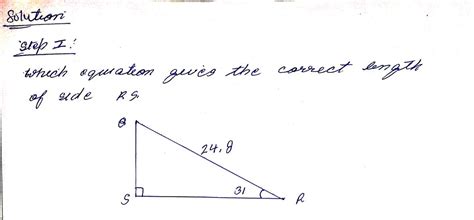 Solution
Step I:
which equation gives the correct length
of side RS.
Q
24.8
S
31
R